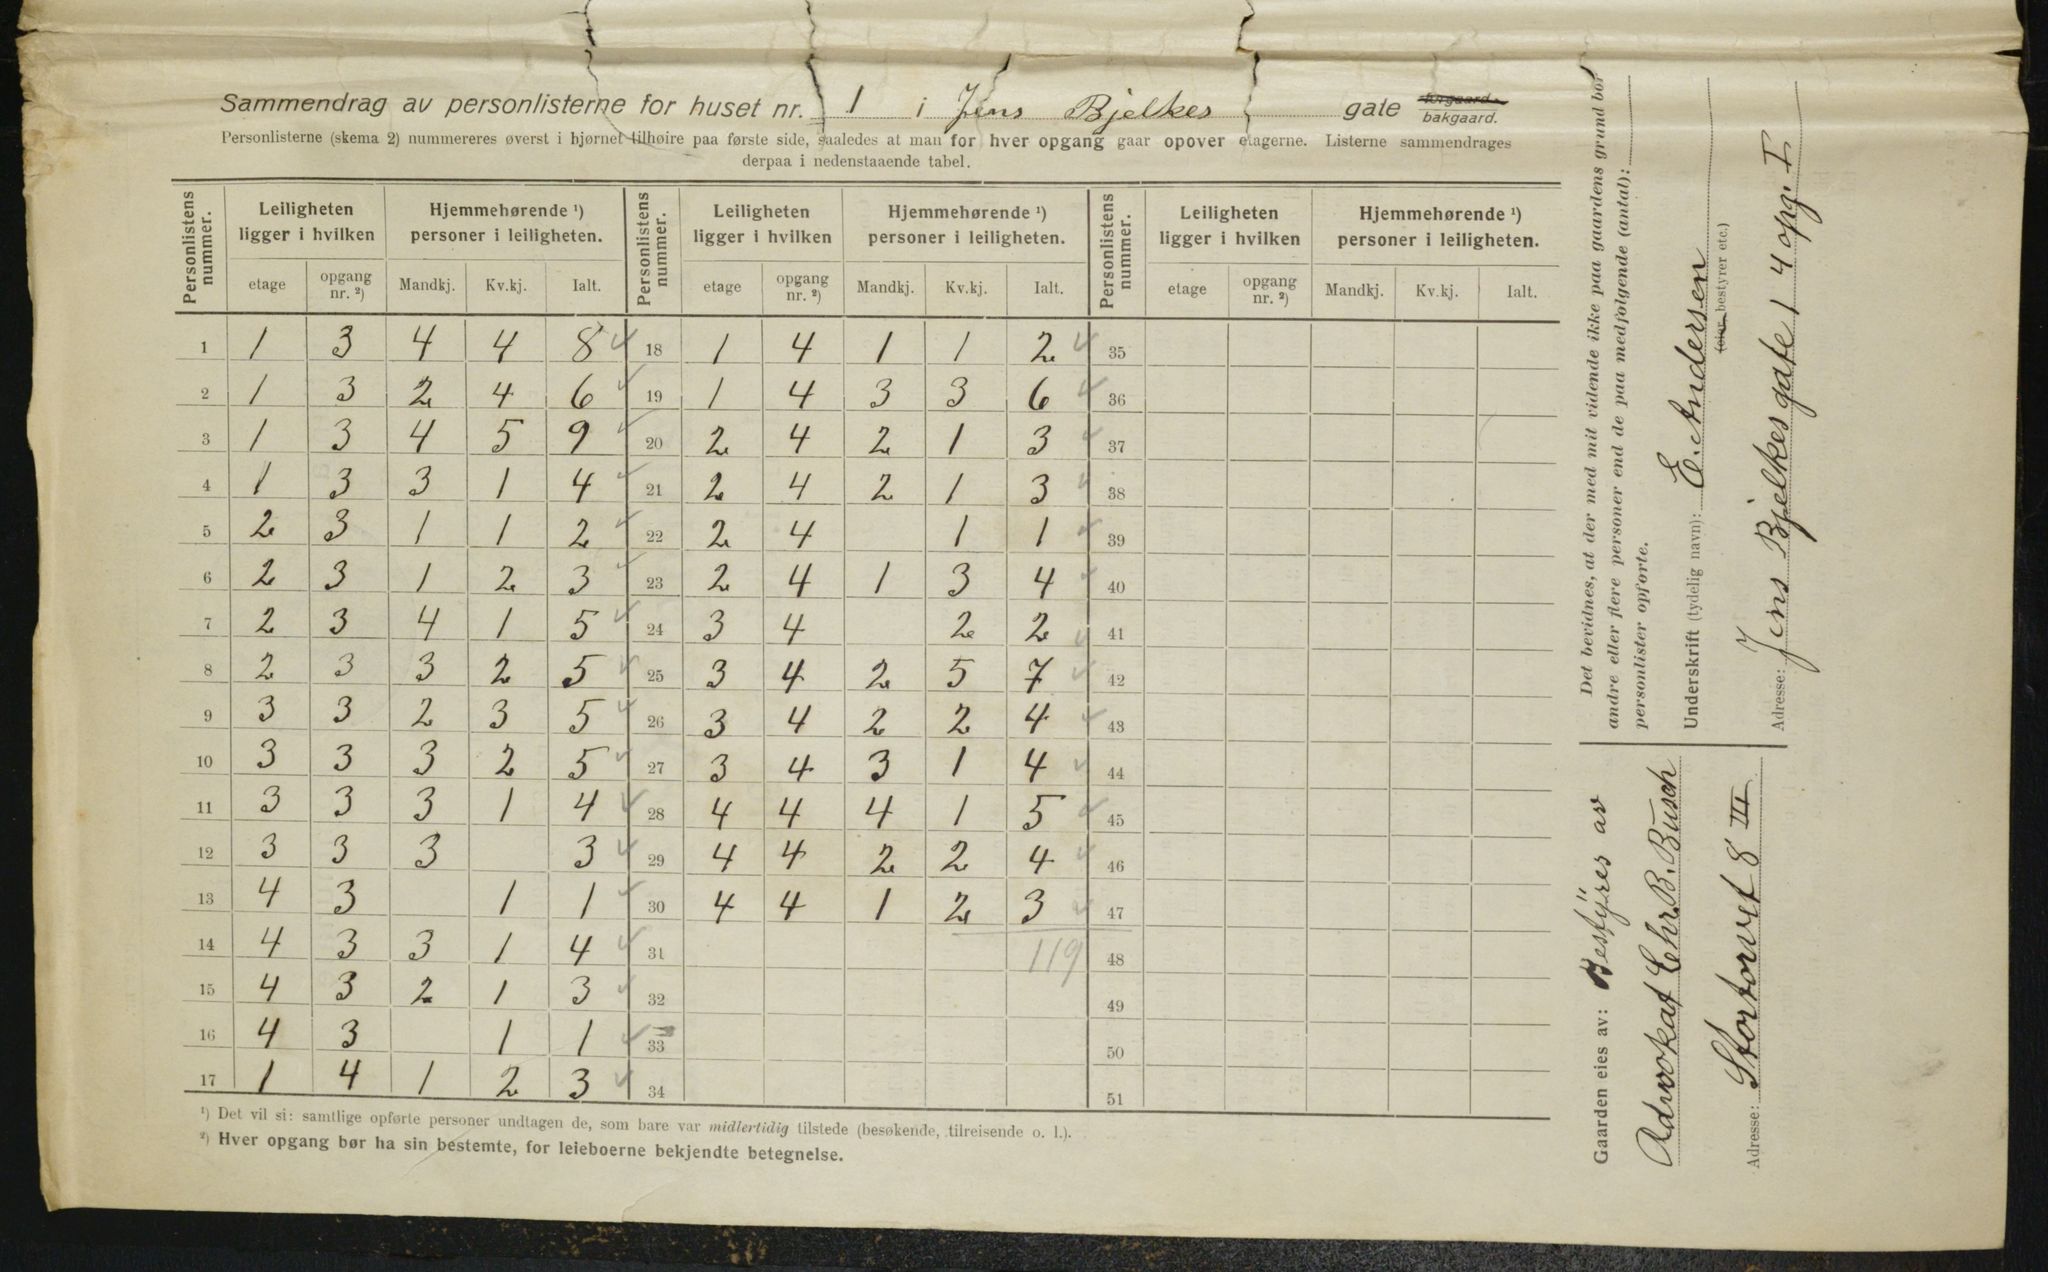 Sammendrag av personlisterne for huset nr. 1 i Jens Bjelkes gate forgaard. bakgaard.
Personlisterne (skema 2) nummereres øverst i hjørnet tilhøire paa første side, saaledes at man for hver opgang gaar opover etagerne. Listerne sammendrages
derpaa i nedenstaaende tabel.
Personlistens nummer. Leiligheten ligger i hvilken Hjemmehørende ¹) personer i leiligheten. Personlistens nummer. Leiligheten ligger i hvilken Hjemmehørende ¹) personer i leiligheten. Personlistens nummer. Leiligheten ligger i hvilken Hjemmehørende ¹) personer i leiligheten.
etage opgang nr. ²) Mandkj. Kv.kj. Ialt. etage opgang nr. ²) Mandkj. Kv.kj. Ialt. etage opgang nr. ²) Mandkj. Kv.kj. Ialt.
1 1 3 4 4 8 ✓ 18 1 4 1 1 2 ✓ 35
2 1 3 2 4 6 ✓ 19 1 4 3 3 6 ✓ 36
3 1 3 4 5 9 ✓ 20 2 4 2 1 3 ✓ 37
4 1 3 3 1 4 ✓ 21 2 4 2 1 3 ✓ 38
5 2 3 1 1 2 ✓ 22 2 4 1 1 ✓ 39
6 2 3 1 2 3 ✓ 23 2 4 1 3 4 ✓ 40
7 2 3 4 1 5 ✓ 24 3 4 2 2 ✓ 41
8 2 3 3 2 5 ✓ 25 3 4 2 5 7 ✓ 42
9 3 3 2 3 5 ✓ 26 3 4 2 2 4 ✓ 43
10 3 3 3 2 5 ✓ 27 3 4 3 1 4 ✓ 44
11 3 3 3 1 4 ✓ 28 4 4 4 1 5 ✓ 45
12 3 3 3 3 ✓ 29 4 4 2 2 4 ✓ 46
13 4 3 1 1 ✓ 30 4 4 1 2 3 ✓ 47
14 4 3 3 1 4 ✓ 31 119 48
15 4 3 2 1 3 ✓ 32 49
16 4 3 1 1 ✓ 33 50
17 1 4 1 2 3 ✓ 34 51
¹) Det vil si: samtlige opførte personer undtagen de, som bare var midlertidig tilstede (besøkende, tilreisende o. l.).
²) Hver opgang bør ha sin bestemte, for leieboerne bekjendte betegnelse.
Det bevidnes, at der med mit vidende ikke paa gaardens grund bor
andre eller flere personer end de paa medfølgende (antal):
personlister opførte.
Underskrift (tydelig navn): E. Andersen
(eier, bestyrer etc.)
Adresse: Jens Bjelkesgate 1 4 opg. I
Gaarden eies av: Bestyres av
Advokat Chr. B. Busch
Adresse: Stortorvet 8 III